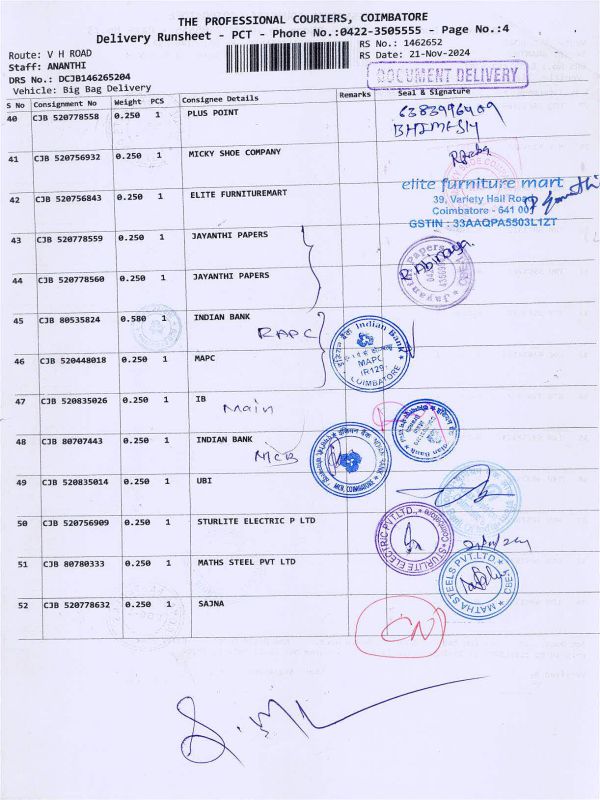 THE PROFESSIONAL COURIERS, COIMBATORE
Delivery Runsheet - PCT - Phone No.:0422-3505555 - Page No.:4
Route: V H ROAD
RS No.: 1462652
Staff: ANANTHI
RS Date: 21-Nov-2024
DRS No.: DCJB146265204
Vehicle: Big Bag Delivery
DOCUMENT DELIVERY
S No Consignment No Weight PCS Consignee Details Remarks Seal & Signature
40 CJB 520778558 0.250 1 PLUS POINT
6383996409
41 CJB 520756932 0.250 1 MICKY SHOE COMPANY
42 CJB 520756843 0.250 1 ELITE FURNITUREMART
elite furniture mart
39, Variety Hall Road
Coimbatore - 641 001
GSTIN : 33AAQPA5503L1ZT
43 CJB 520778559 0.250 1 JAYANTHI PAPERS
R. Abinaya
44 CJB 520778560 0.250 1 JAYANTHI PAPERS
45 CJB 80535824 0.580 1 INDIAN BANK
RAPC
Indian Bank
MAPC
COIMBATORE
46 CJB 520448018 0.250 1 MAPC
47 CJB 520835026 0.250 1 IB
Main
48 CJB 80707443 0.250 1 INDIAN BANK
MCB
MCB, COIMBATORE
49 CJB 520835014 0.250 1 UBI
50 CJB 520756909 0.250 1 STURLITE ELECTRIC P LTD
STURLITE ELECTRIC PVT.LTD., Coimbatore
51 CJB 80780333 0.250 1 MATHS STEEL PVT LTD
MATHA STEELS PVT.LTD. CBE
52 CJB 520778632 0.250 1 SAJNA
CN